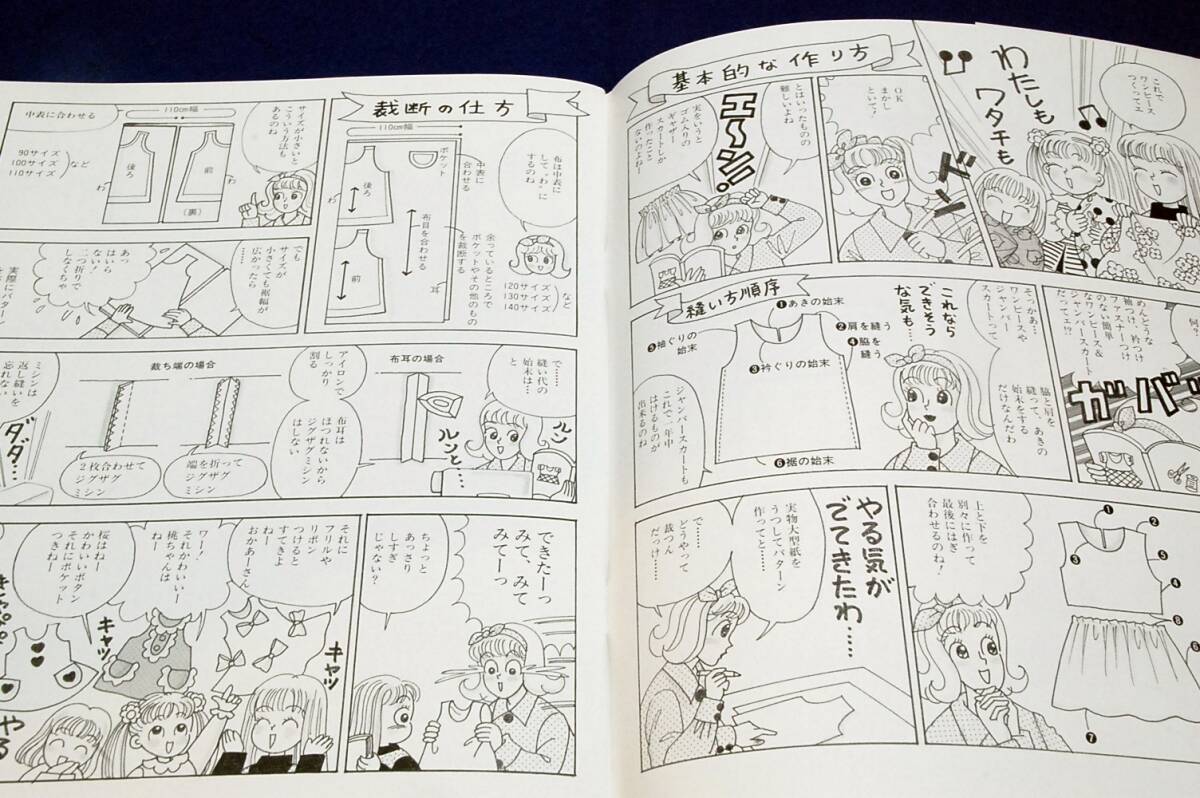 基本的な作り方
これで
ワンピース
つくってェ
わたしも
ワタチも
OK
まかし
といて!
ドドン
とはいったものの
難しいよね
実をいうと
ゴム入りの
ギャザー
スカートしか
作ったこと
ないのよねー
エーッ!
何?
めんどうな
袖つけ、衿つけ
ファスナーつけ
のない簡単
なワンピース&
ジャンパースカート
だってェ!?
ガバッ
そっかあ…
ワンピースや
ジャンパー
スカートって
脇と肩を
縫って、あきの
始末をする
だけなんだわ
これなら
できそう
な気も…
縫い方順序
❶あきの始末
❷肩を縫う
❹脇を
縫う
❺袖ぐりの
始末
❸衿ぐりの始末
❻裾の始末
ジャンパースカートも
これで一年中
はけるものが
出来るのね
上と下を
別々に作って
最後にはぎ
合わせるのね!
❶
❷
❸
❺
❹
❽
❻
❼
やる気が
でてきたわ……
実物大型紙を
うつしてパターン
作ってと……
で……
どうやって
裁つん
だっけ……
裁断の仕方
110cm幅
ポケット
後ろ
わ
前
布目を合わせる
耳
中表に
合わせる
余っているところで
ポケットやその他のもの
を裁断する
布は中表に
して“わ”に
するのね
120サイズ
130サイズ
140サイズ
など
サイズが小さいと
こういう方法も
あるのね
中表に合わせる
110cm幅
90サイズ
100サイズ
110サイズ
など
わ
後ろ
前
わ
(裏)
でも
サイズが
小さくても裾幅が
広かったら
あっ
はいら
ない!
二つ折りで
しなくちゃ
実際にパターン
で……
縫い代の
始末は…
と
ルン
ルンと…
布耳の場合
アイロンで
しっかり
割る
布耳は
ほつれないから
ジグザグミシン
はしない
裁ち端の場合
端を折って
ジグザグ
ミシン
2枚合わせて
ジグザグ
ミシン
ミシンは
返し縫いを
忘れない
ダダ…
できたーっ
みて、みて
みてーっ
ちょっと
あっさり
しすぎ
じゃない?
それに
フリルや
リボン
つけると
すてきよ
おかあーさん
キャッ
ワー!
それかわいいー
桃ちゃんは
ねー
キャッ
桜はねー
かわいいボタン
それにポケット
つきねー
やる